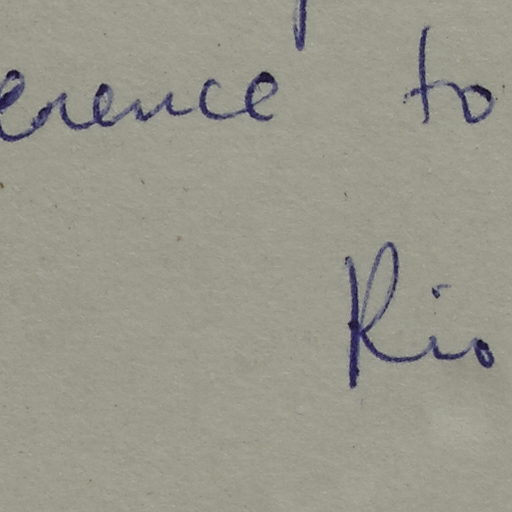 erence to
Rio